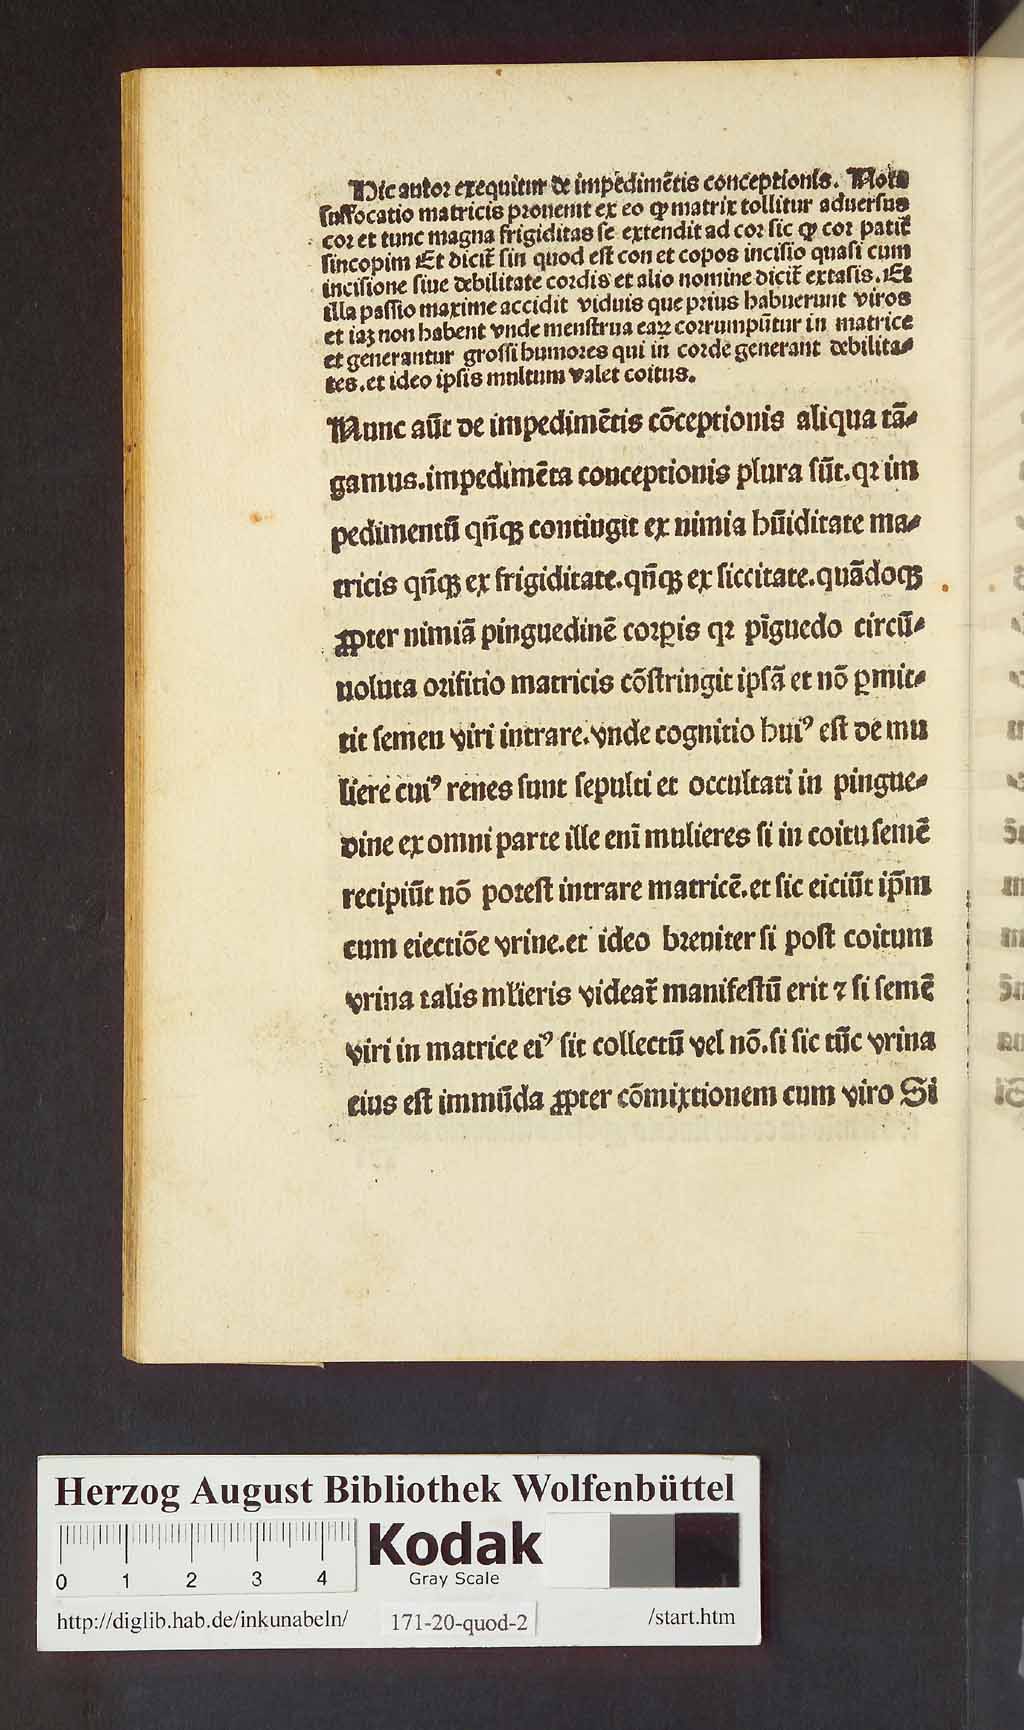 Hic autoꝛ exequitur de impedimētis conceptionis. Nota
suffocatio matricis pꝛouenit ex eo ꝙ matrix tollitur aduersus
coꝛ et tunc magna frigiditas se extendit ad coꝛ sic ꝙ coꝛ patit᷑
sincopim Et dicit᷑ sin quod est con et copos incisio quasi cum
incisione siue debilitate coꝛdis et alio nomine dicit᷑ extasis. Et
illa passio maxime accidit viduis que pꝛius habuerunt viros
et iaꝫ non habent vnde menstrua eaꝝ coꝛrumpūtur in matrice
et generantur grossi humoꝛes qui in coꝛde generant debilita⸗
tes. et ideo ipsis multum valet coitus.
Nunc aūt de impedimētis cōceptionis aliqua tā⸗
gamus. impedimēta conceptionis plura sūt. qꝛ im
pedimentū qn̄qꝫ contingit ex nimia hūiditate ma⸗
tricis qn̄qꝫ ex frigiditate. qn̄qꝫ ex siccitate. quādoqꝫ
ꝓpter nimiā pinguedinē coꝛꝑis qꝛ pīguedo circū⸗
uoluta oꝛifitio matricis cōstringit ipsā et nō ꝑmit⸗
tit semen viri intrare. vnde cognitio huiꝰ est de mu
liere cuiꝰ renes sunt sepulti et occultati in pingue⸗
dine ex omni parte ille enī mulieres si in coitu semē
recipiūt nō poꝛest intrare matricē. et sic eiciūt ip̄m
cum eiectiōe vrine. et ideo bꝛeuiter si post coitum
vrina talis mľieris videat᷑ manifestū erit ⁊ si semē
viri in matrice eiꝰ sit collectū vel nō. si sic tūc vrina
eius est immūda ꝓpter cōmixtionem cum viro Si
Herzog August Bibliothek Wolfenbüttel
0 1 2 3 4
Kodak
Gray Scale
http://diglib.hab.de/inkunabeln/ 171-20-quod-2 /start.htm